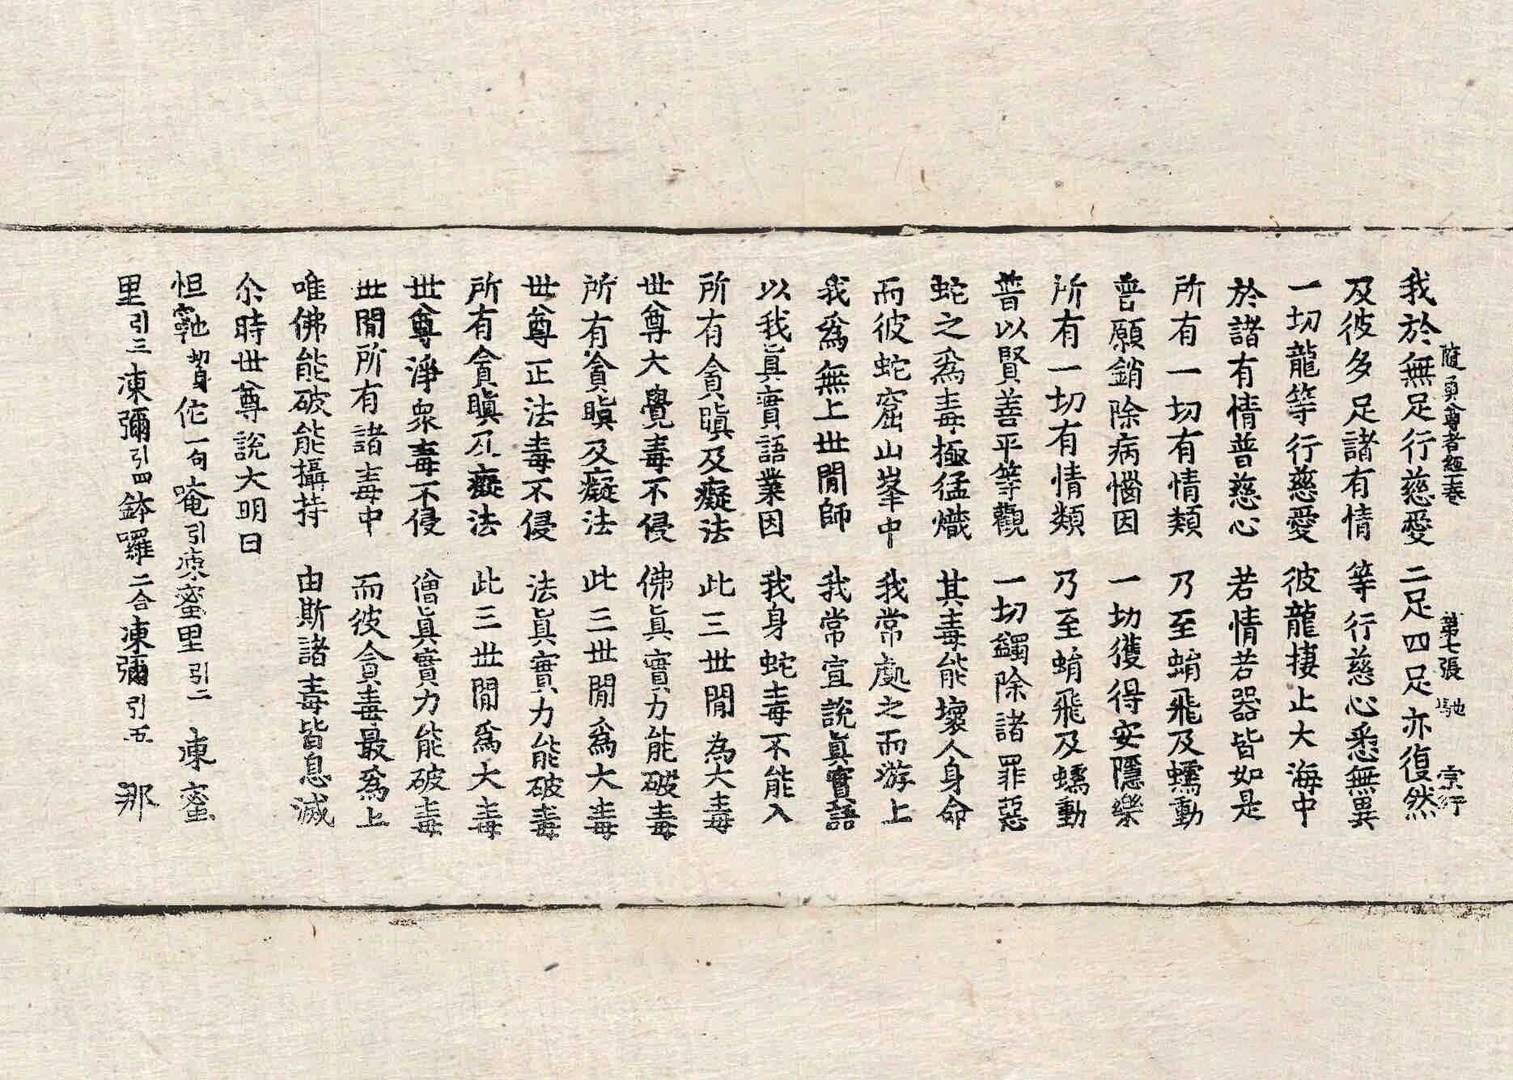 隨勇尊者經一卷 第七張 馳 宗行
我於無足行慈愛 二足四足亦復然
及彼多足諸有情 等行慈心悉無異
一切龍等行慈愛 彼龍捿止大海中
於諸有情普慈心 若情若器皆如是
所有一切有情類 乃至蜎飛及蠕動
普願銷除病惱因 一切獲得安隱樂
所有一切有情類 乃至蜎飛及蠕動
普以賢善平等觀 一切蠲除諸罪惡
蛇之爲毒極猛熾 其毒能壞人身命
而彼蛇窟山峯中 我常處之而游上
我爲無上世閒師 我常宣說眞實語
以我眞實語業因 我身蛇毒不能入
所有貪瞋及癡法 此三世閒為大毒
世尊大覺毒不侵 佛眞實力能破毒
所有貪瞋及癡法 此三世閒爲大毒
世尊正法毒不侵 法眞實力能破毒
所有貪瞋及癡法 此三世閒爲大毒
世尊淨衆毒不侵 僧眞實力能破毒
世閒所有諸毒中 而彼貪毒最爲上
唯佛能破能攝持 由斯諸毒皆息滅
尒時世尊說大明曰
怛 他 切身 佗一句唵引凍蜜里引二 凍蜜
里引三凍彌引四鉢囉二合凍彌引五 那